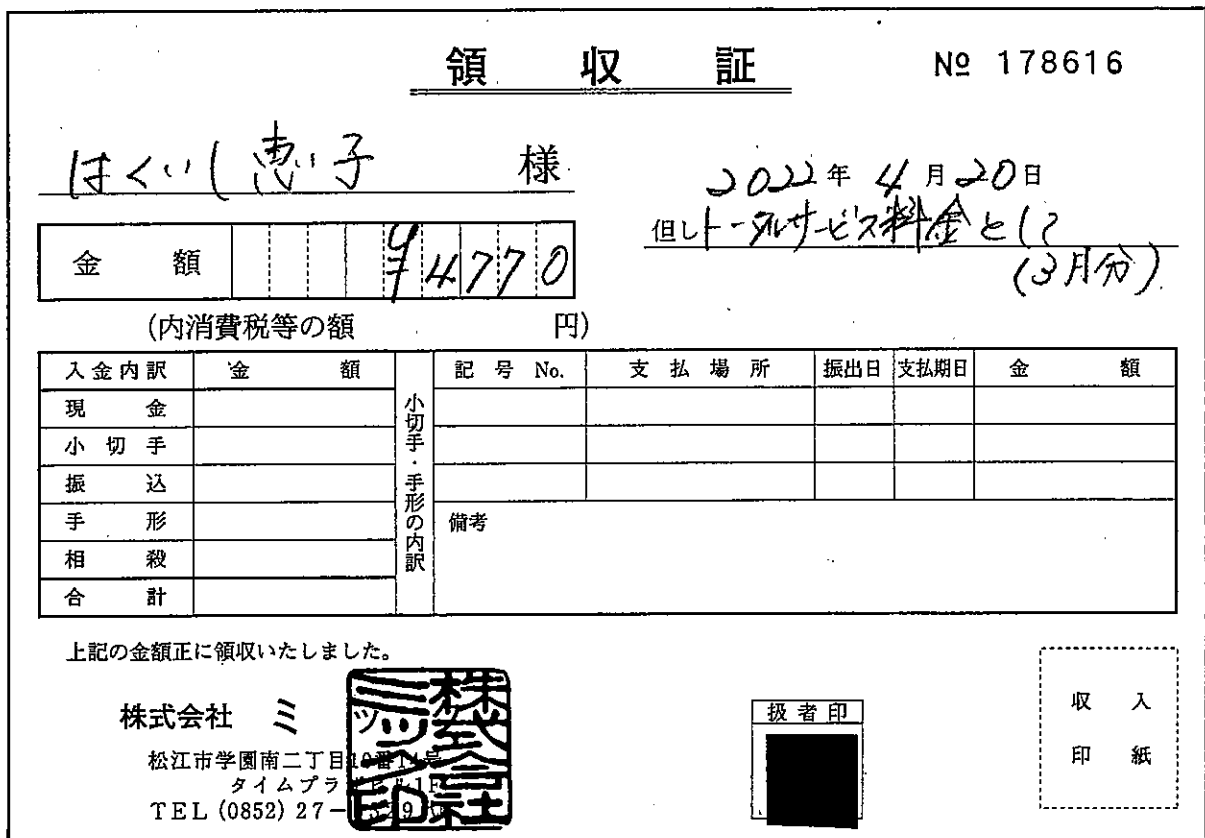 領収証
№ 178616
はくいし恵子 様
2022年4月20日
但しトータルサービス料金として
(3月分)
金額 ¥4770
(内消費税等の額 円)
入金内訳 金額
現金
小切手
振込
手形
相殺
合計
小切手・手形の内訳
記号No. 支払場所 振出日 支払期日 金額
備考
上記の金額正に領収いたしました。
株式会社 ミ
松江市学園南二丁目10番14号
タイムプラ
TEL (0852) 27-
扱者印
収入
印紙